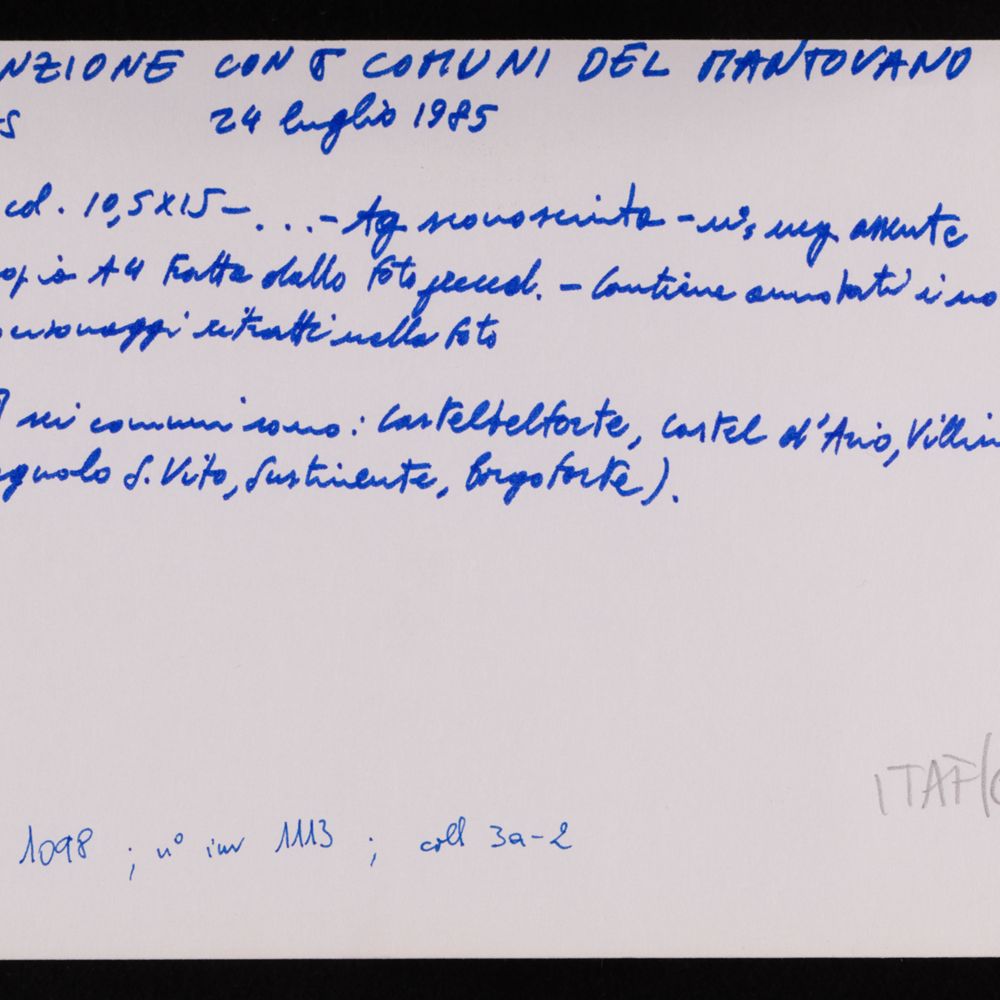 NZIONE CON 6 COMUNI DEL MANTOVANO
24 luglio 1985
col. 10,5X15 - ... - Ag sconosciuta - n°, neg assente
opia A4 tratta dalla foto preced. - Contiene annotati i no
ersonaggi ritratti nella foto
sei comuni sono: Castelbelforte, Castel d'Ario, Villim
gnolo S. Vito, Sustinente, Borgoforte).
1098 ; n° inv 1113 ; coll 3a-2
ITAF/